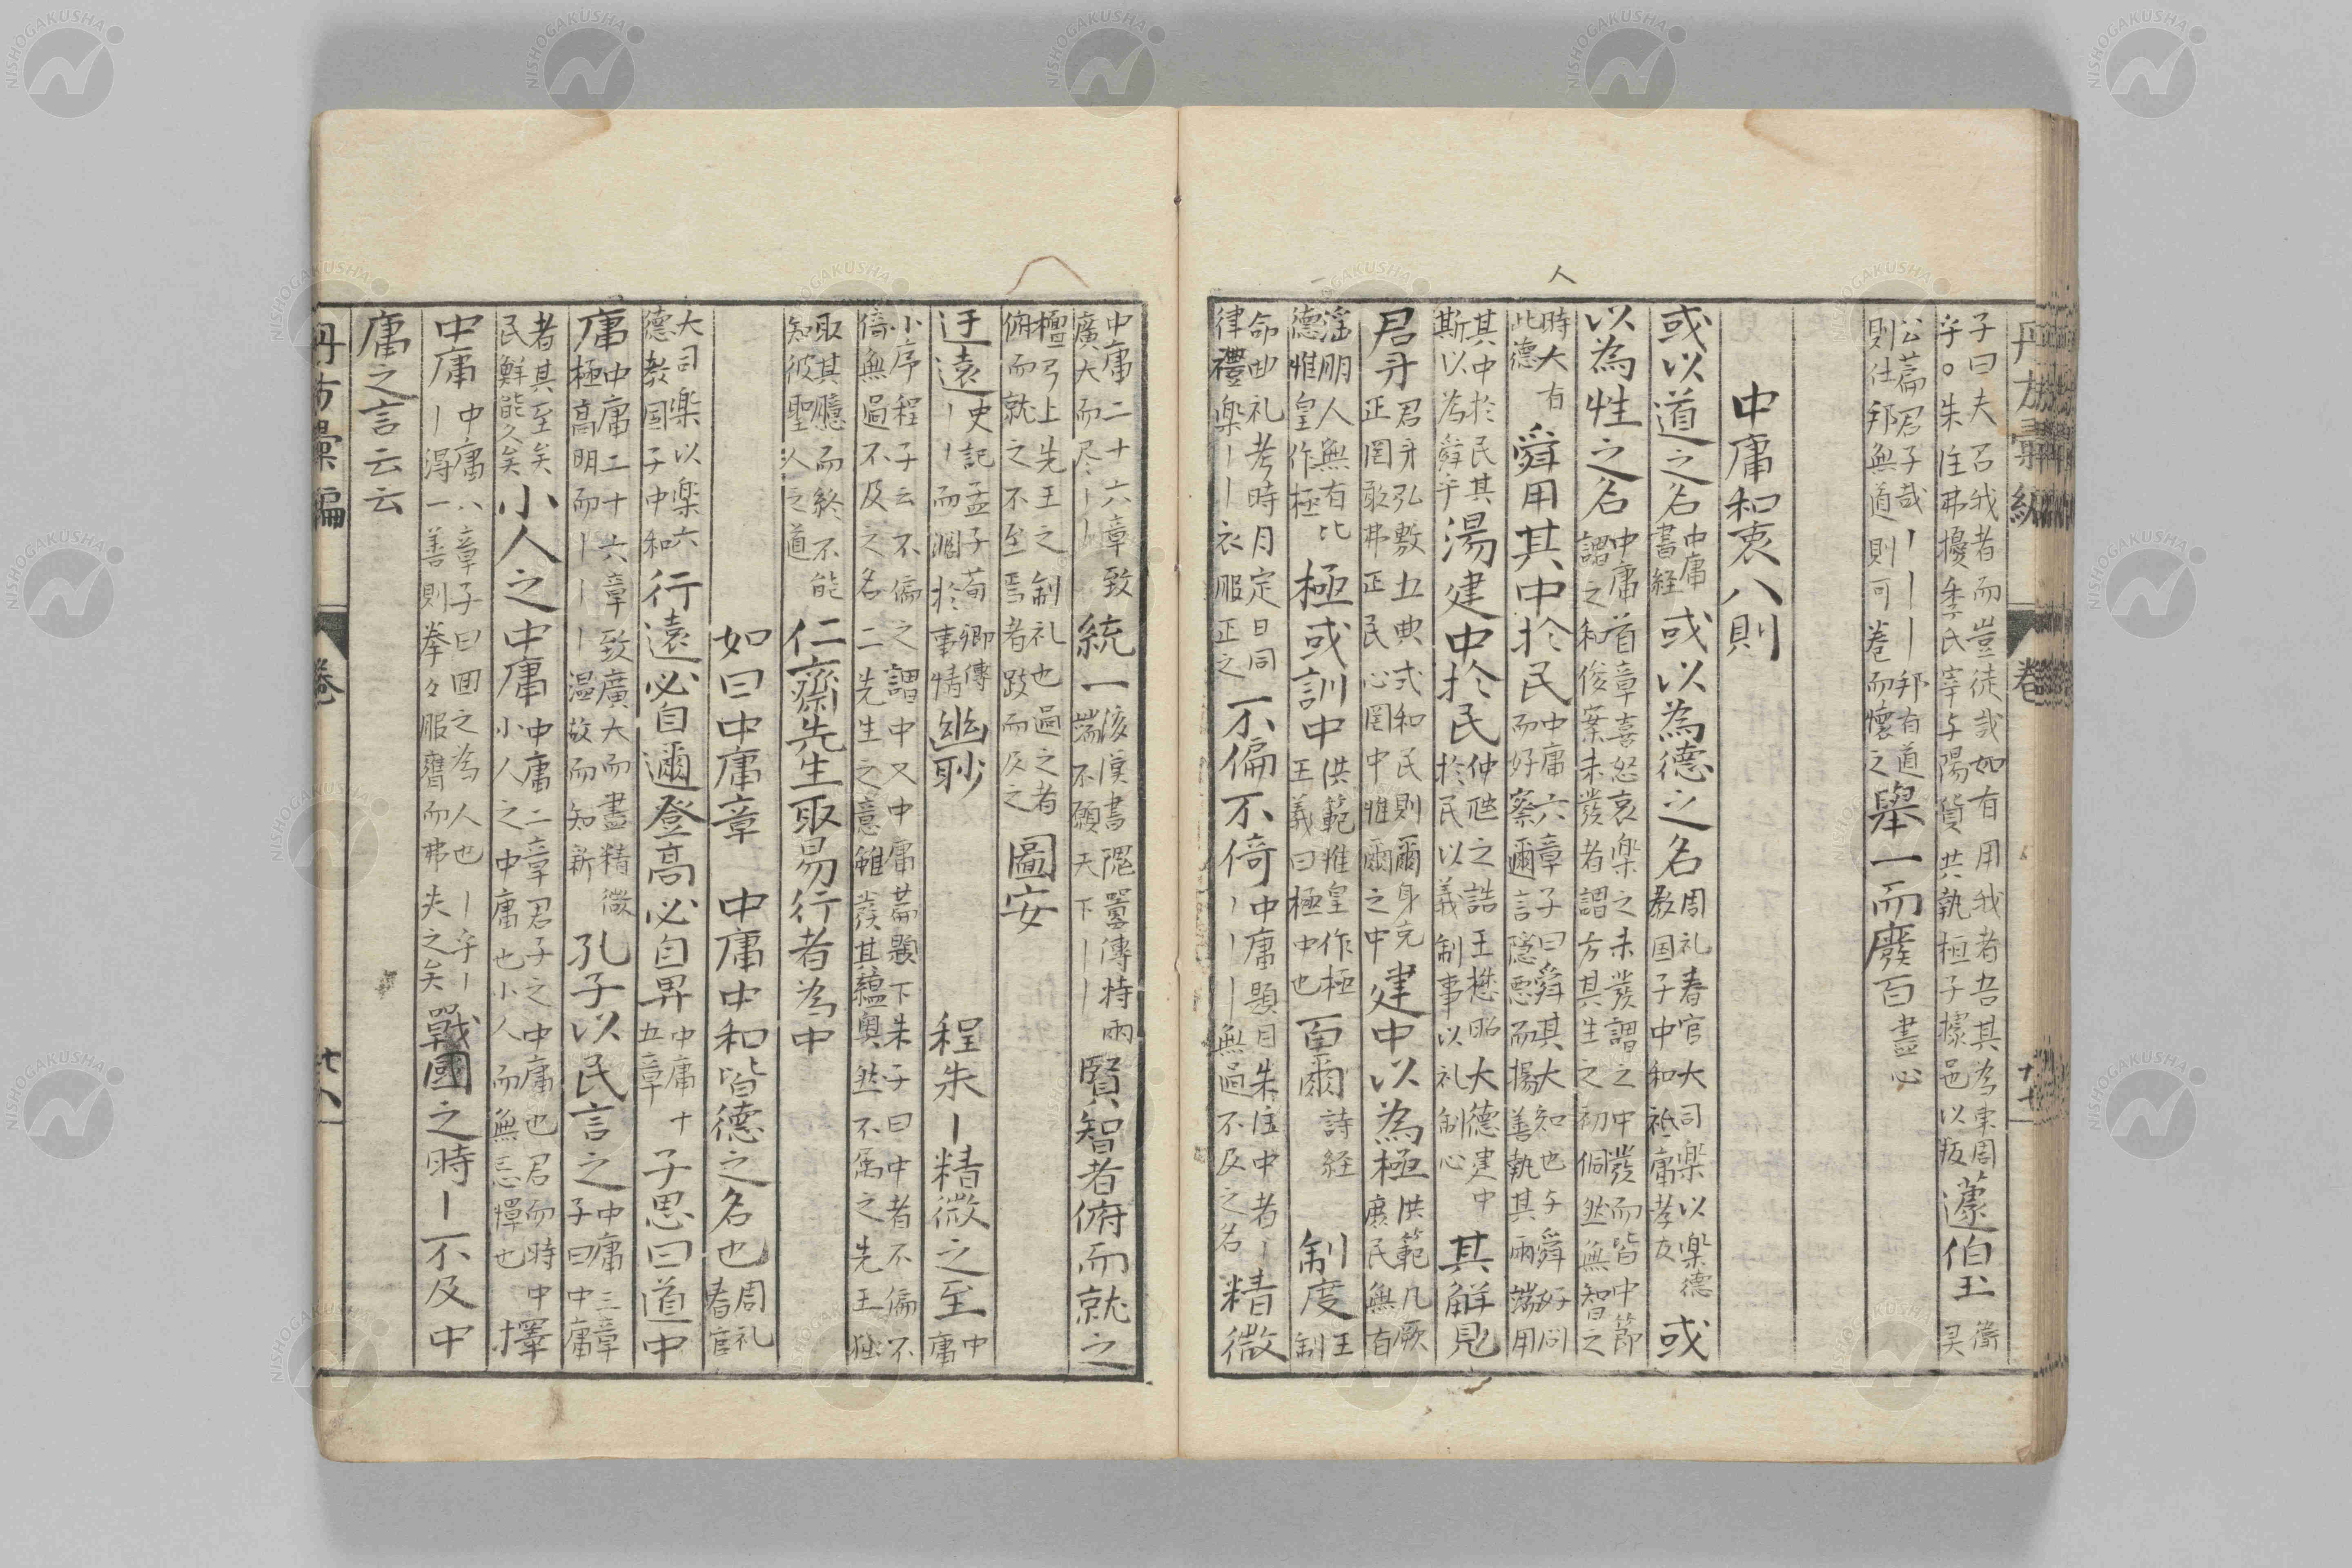 子曰夫召我者而豈徒哉如有用我者吾其為東周
乎○朱注弗擾季氏宰与陽貨共執桓子據邑以叛
蘧伯玉
公篇君子哉｜｜｜邦有道
則仕邦無道則可卷而懷之
舉一而廢百 盡心
中庸和衷八則
或以道之名
中庸
書経
或以為德之名
周礼春官大司楽以楽德
教国子中和祗庸孝友
或
以為性之名
中庸首章喜怒哀楽之未發謂之中發而皆中節
謂之和俊案未發者謂方其生之初侗然無智之
時大有
此德
舜用其中於民
中庸六章子曰舜其大知也与舜好問
而好察邇言隠悪而揚善執其兩端用
其中於民其
斯以為舜乎
湯建中於民
仲虺之誥王懋昭大德建中
於民以義制事以礼制心
其解見
君牙
君牙弘敷五典式和民則爾身克
正罔敢弗正民心罔中惟爾之中
建中以為極
洪範凡厥
庶民無有
淫朋人無有比
德惟皇作極
極或訓中
洪範惟皇作極
王義曰極中也
百爾
詩経
制度
王
制
命曲礼考時月定日同
律禮楽｜｜衣服正之
不偏不倚
中庸題目朱注中者｜
｜｜｜無過不及之名
精微
中庸二十六章致
廣大而尽｜｜
統一
後漢書隗囂傳持兩
端不願天下｜｜
賢智者俯而就之
檀弓上先王之制礼也過之者
俯而就之不至焉者跂而及之
圖安
迂遠
史記孟子荀卿傳
｜｜而濶於事情
幽眇
程朱｜精微之至
中
庸
小序程子云不偏之謂中又中庸篇題下朱子曰中者不偏不
倚無過不及之名二先生之意雖發其蘊奧然不属之先王独
取其臆而終不能
知彼聖人之道
仁齋先生取易行者為中
如曰中庸章
中庸中和皆德之名也
周礼
春官
大司楽以楽六
德教国子中和
行遠必自邇登高必自卑
中庸十
五章
子思曰道中
庸
中庸二十六章致廣大而盡精微
極高明而｜｜｜温故而知新
孔子以民言之
中庸三章
子曰中庸
者其至矣
民鮮能久矣
小人之中庸
中庸二章君子之中庸也君而時中
小人之中庸也小人而無忌憚也
擇
中庸
中庸八章子曰回之為人也｜乎｜
｜得一善則拳々服膺而弗失之矣
戰國之時｜不及中
庸之言云云